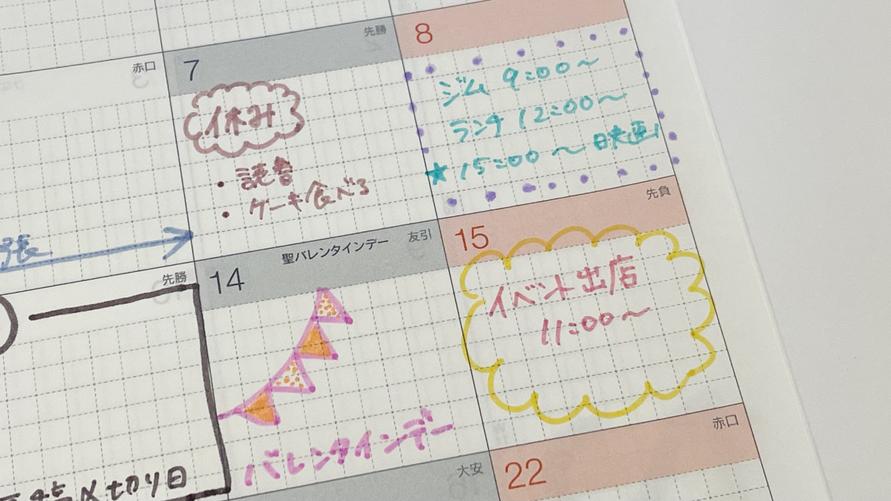 赤口
7
先勝
8
休み
・読書
・ケーキ食べる
ジム 9:00〜
ランチ 12:00〜
★15:00〜映画!
張
先勝
14
聖バレンタインデー
友引
15
先負
バレンタインデー
イベント出店
11:00〜
〆切り日
大安
22
赤口